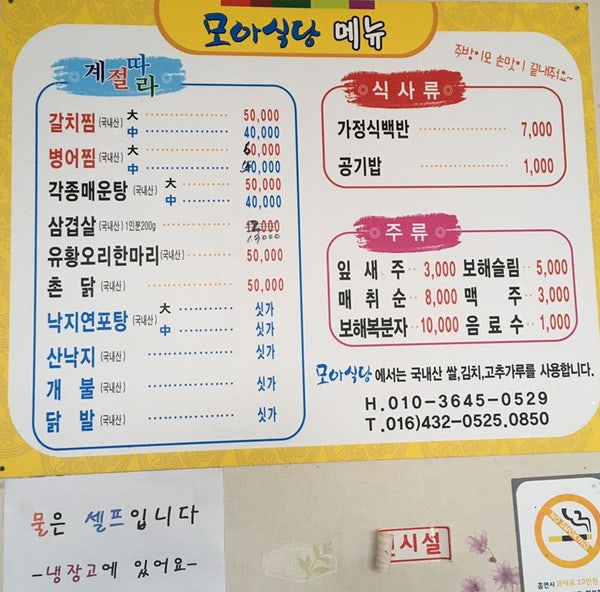 모아식당 메뉴
주방이모 손맛이 끝내줘요~
계절따라
갈치찜 (국내산) 大 50,000
中 40,000
병어찜 (국내산) 大 60,000
中 50,000
각종매운탕 (국내산) 大 50,000
中 40,000
삼겹살 (국내산) 1인분200g 12,000
유황오리한마리 (국내산) 50,000
촌닭 (국내산) 50,000
낙지연포탕 (국내산) 大 싯가
中 싯가
산낙지 (국내산) 싯가
개불 (국내산) 싯가
닭발 (국내산) 싯가
식사류
가정식백반 7,000
공기밥 1,000
주류
잎새주 3,000 보해슬림 5,000
매취순 8,000 맥주 3,000
보해복분자 10,000 음료수 1,000
모아식당에서는 국내산 쌀,김치,고추가루를 사용합니다.
H.010-3645-0529
T.016)432-0525.0850
물은 셀프입니다
-냉장고에 있어요-
시설
NO SMOKING
흡연시 과태료 10만원